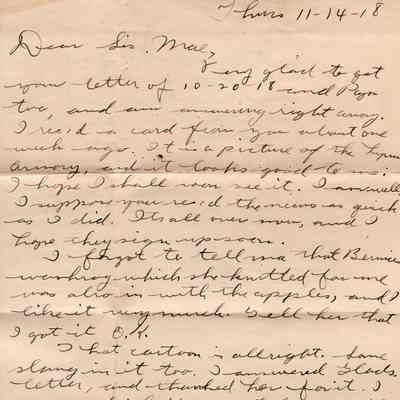 Thurs 11-14-18
Dear Sis. Mae,
Very glad to get
your letter of 10-20-18 and Papa
too, and am answering right away.
I rec'd a card from you about one
week ago. It is a picture of the
Armory, and it looks good to me.
I hope I shall soon see it. I am well
I suppose you rec'd the news as quick
as I did. Its all over now, and I
hope they sign up soon.
I forgot to tell ma that Bernice
which she knitted for me
was also in with the apples, and I
like it very much. Tell her that
I got it O.K.
That cartoon is allright. Some
slang in it too. I answered Glads
letter, and thanked her for it. I